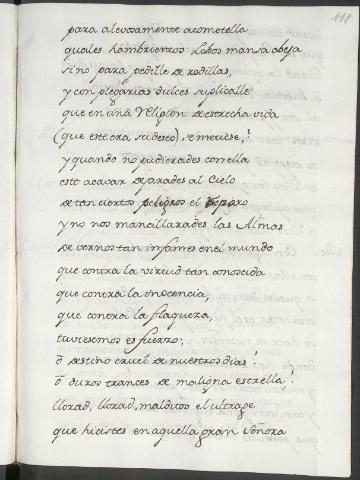 111
para alevosamente acometella
quales hambrientos Lobos mansa obeja
sino para pedille de rodillas,
y con plegarias dulces suplicalle
que en una Religion de estrecha vida
(que este era su deseo) se metiese,!
y quando no pudierades con ella
esto acavar dexarades al Cielo
de tan ciertos peligros el reparo
y no nos mancillarades las Almas
de vernos tan infames en el mundo
que contra la virtud tan conocida
que contra la inocencia,
que contra la flaqueza,
tuviesemos esfuerzo;
õ destino cruel de nuestros dias!
õ duros trances de maligna estrella,!
llorad, llorad, malditos el ultrage
que hicistes en aquella gran Señora